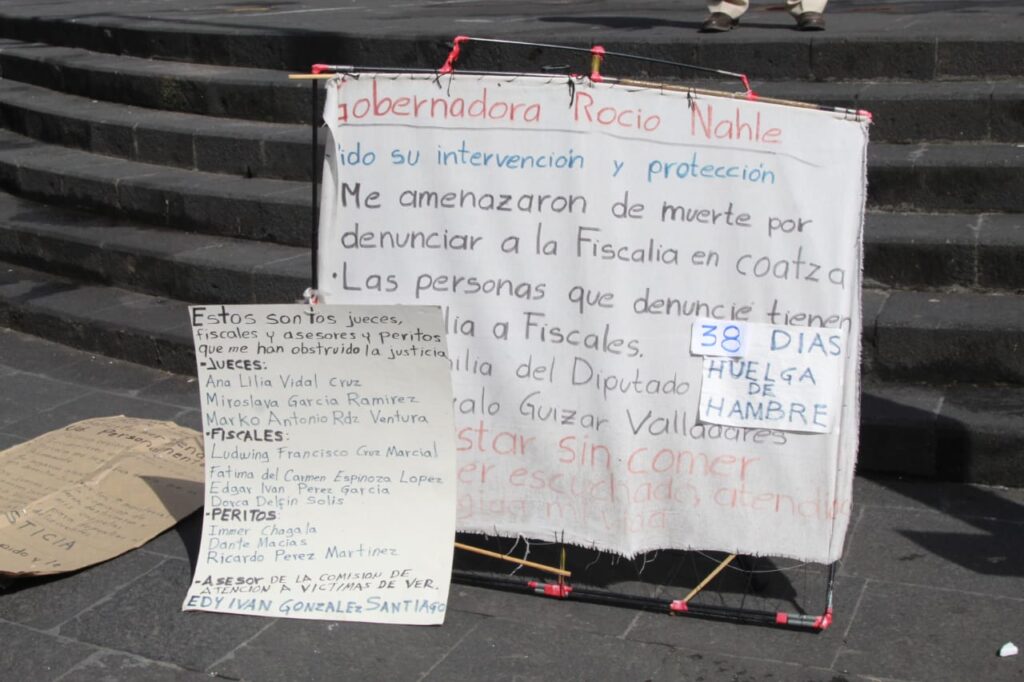 gobernadora Rocio Nahle
ido su intervención y protección
Me amenazaron de muerte por
denunciar a la Fiscalia en coatza
·Las personas que denuncié tienen
lia a Fiscales.
ilia del Diputado
alo Guizar Valladares
star sin comer
er escuchado, atendid
38 DIAS
HUELGA
DE
HAMBRE
Estos son los jueces,
fiscales y asesores y peritos
que me han obstruido la justicia
-JUECES:
Ana Lilia Vidal Cruz
Miroslava Garcia Ramirez
Marko Antonio Rdz Ventura
-FISCALES:
Ludwing Francisco Cruz Marcial
Fatima del Carmen Espinoza Lopez
Edgar Ivan Perez Garcia
Dorca Delfin Solis
-PERITOS:
Immer Chagala
Dante Macias
Ricardo Perez Martinez
-ASESOR DE LA COMISION DE
ATENCION A VICTIMAS DE VER.
EDY IVAN GONZALEZ SANTIAGO
STICIA